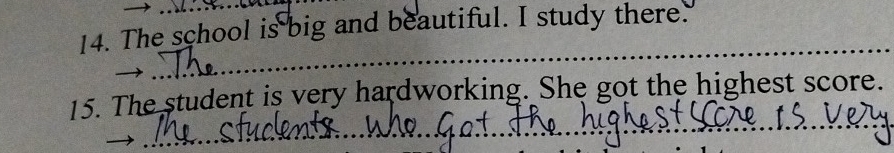 14. The school is big and beautiful. I study there.
→ The
15. The student is very hardworking. She got the highest score.
→ The students who Got the highest score is very